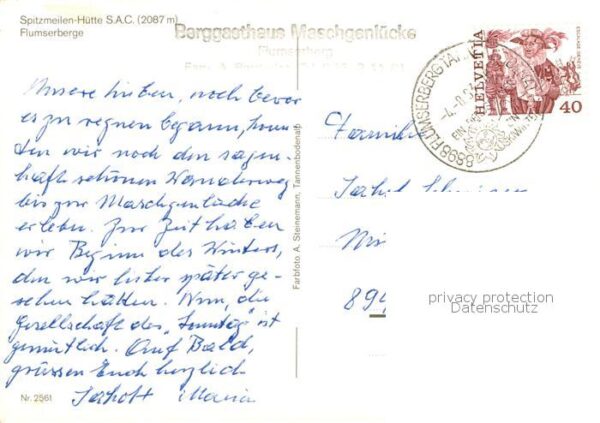 Spitzmeilen-Hütte S.A.C. (2087 m)
Flumserberge
Berggasthaus Maschgenlücke
Flumserberg
HELVETIA
40
8898 FLUMSERBERG TA
Unsere Lieben, noch bevor
es zu regnen begann, konn
ten wir noch den sagen-
haft schönen Wanderweg
bis zur Maschgenlücke
erleben. Zur Zeit haben
wir Beginn des Winters,
den wir lieber später ge-
sehen hätten. Nun, die
Gesellschaft des "Sonntag" ist
gemütlich. Auf Bald,
grüssen Euch herzlich
Maria
Familie
899
Farbfoto A. Steinemann, Tannenbodenalp
privacy protection
Datenschutz
Nr. 2561